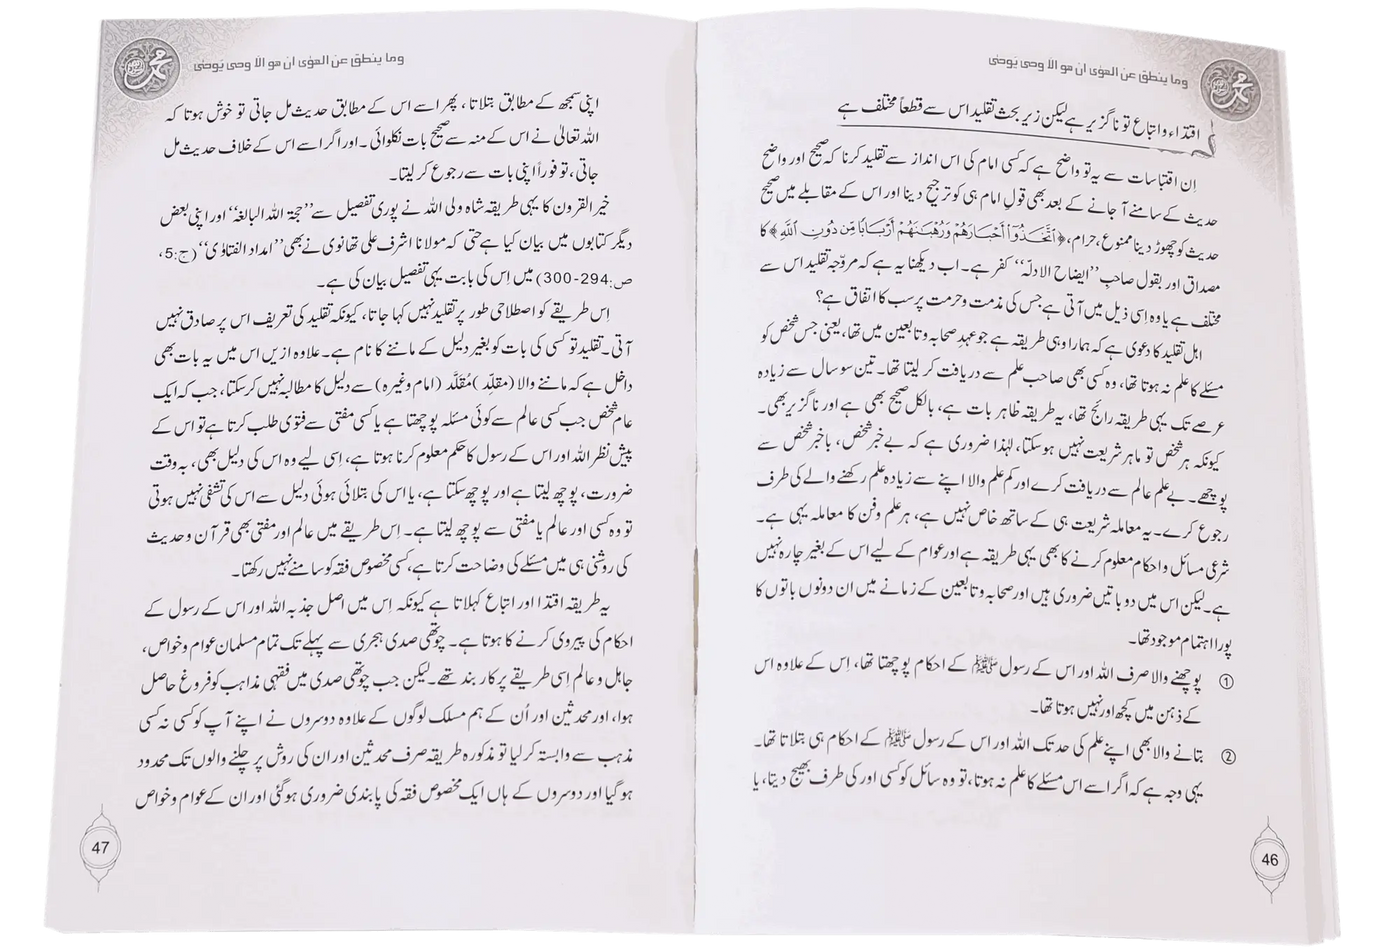 وما ينطق عن الهوٰى ان هو الا وحى يوحىٰ
اقتداء واتباع تو ناگزیر ہے لیکن زیر بحث تقلید اس سے قطعاً مختلف ہے
اِن اقتباسات سے یہ تو واضح ہے کہ کسی امام کی اس انداز سے تقلید کرنا کہ صحیح اور واضح
حدیث کے سامنے آ جانے کے بعد بھی قولِ امام ہی کو ترجیح دینا اور اس کے مقابلے میں صحیح
حدیث کو چھوڑ دینا ممنوع، حرام، ﴿اتَّخَذُوْا أَحْبَارَهُمْ وَرُهْبَانَهُمْ أَرْبَابًا مِّن دُونِ اللَّهِ﴾ کا
مصداق اور بقول صاحب ”ایضاح الادلّہ“ کفر ہے۔ اب دیکھنا یہ ہے کہ مروّجہ تقلید اس سے
مختلف ہے یا وہ اِسی ذیل میں آتی ہے جس کی مذمت و حرمت پر سب کا اتفاق ہے؟
اہل تقلید کا دعوی ہے کہ ہمارا وہی طریقہ ہے جو عہدِ صحابہ و تابعین میں تھا، یعنی جس شخص کو
مسئلے کا علم نہ ہوتا تھا، وہ کسی بھی صاحب علم سے دریافت کر لیتا تھا۔ تین سو سال سے زیادہ
عرصے تک یہی طریقہ رائج تھا، یہ طریقہ ظاہر بات ہے، بالکل صحیح بھی ہے اور ناگزیر بھی۔
کیونکہ ہر شخص تو ماہر شریعت نہیں ہو سکتا، لہٰذا ضروری ہے کہ بے خبر شخص، باخبر شخص سے
پوچھے۔ بے علم عالم سے دریافت کرے اور کم علم والا اپنے سے زیادہ علم رکھنے والے کی طرف
رجوع کرے۔ یہ معاملہ شریعت ہی کے ساتھ خاص نہیں ہے، ہر علم و فن کا معاملہ یہی ہے۔
شرعی مسائل و احکام معلوم کرنے کا بھی یہی طریقہ ہے اور عوام کے لیے اس کے بغیر چارہ نہیں
ہے۔ لیکن اس میں دو باتیں ضروری ہیں اور صحابہ و تابعین کے زمانے میں ان دونوں باتوں کا
پورا اہتمام موجود تھا۔
① پوچھنے والا صرف اللہ اور اس کے رسول ﷺ کے احکام پوچھتا تھا، اِس کے علاوہ اس
کے ذہن میں کچھ اور نہیں ہوتا تھا۔
② بتانے والا بھی اپنے علم کی حد تک اللہ اور اس کے رسول ﷺ کے احکام ہی بتلاتا تھا۔
یہی وجہ ہے کہ اگر اسے اس مسئلے کا علم نہ ہوتا، تو وہ سائل کو کسی اور کی طرف بھیج دیتا، یا
46
وما ينطق عن الهوٰى ان هو الا وحى يوحىٰ
اپنی سمجھ کے مطابق بتلاتا، پھر اسے اس کے مطابق حدیث مل جاتی تو خوش ہوتا کہ
اللہ تعالیٰ نے اس کے منہ سے صحیح بات نکلوائی۔ اور اگر اسے اس کے خلاف حدیث مل
جاتی، تو فوراً اپنی بات سے رجوع کر لیتا۔
خیر القرون کا یہی طریقہ شاہ ولی اللہ نے پوری تفصیل سے ”حجۃ اللہ البالغۃ“ اور اپنی بعض
دیگر کتابوں میں بیان کیا ہے حتی کہ مولانا اشرف علی تھانوی نے بھی ”امداد الفتاوٰی“ (ج:5،
ص:294-300) میں اِس کی بابت یہی تفصیل بیان کی ہے۔
اِس طریقے کو اصطلاحی طور پر تقلید نہیں کہا جاتا، کیونکہ تقلید کی تعریف اس پر صادق نہیں
آتی۔ تقلید تو کسی کی بات کو بغیر دلیل کے ماننے کا نام ہے۔ علاوہ ازیں اس میں یہ بات بھی
داخل ہے کہ ماننے والا (مقلِّد) مُقَلَّد (امام وغیرہ) سے دلیل کا مطالبہ نہیں کر سکتا، جب کہ ایک
عام شخص جب کسی عالم سے کوئی مسئلہ پوچھتا ہے یا کسی مفتی سے فتوی طلب کرتا ہے تو اس کے
پیش نظر اللہ اور اس کے رسول کا حکم معلوم کرنا ہوتا ہے، اِسی لیے وہ اس کی دلیل بھی، بہ وقت
ضرورت، پوچھ لیتا ہے اور پوچھ سکتا ہے، یا اس کی بتلائی ہوئی دلیل سے اس کی تشفی نہیں ہوتی
تو وہ کسی اور عالم یا مفتی سے پوچھ لیتا ہے۔ اِس طریقے میں عالم اور مفتی بھی قرآن و حدیث
کی روشنی ہی میں مسئلے کی وضاحت کرتا ہے، کسی مخصوص فقہ کو سامنے نہیں رکھتا۔
یہ طریقہ اقتدا اور اتباع کہلاتا ہے کیونکہ اِس میں اصل جذبہ اللہ اور اس کے رسول کے
احکام کی پیروی کرنے کا ہوتا ہے۔ چوتھی صدی ہجری سے پہلے تک تمام مسلمان عوام و خواص،
جاہل و عالم اِسی طریقے پر کاربند تھے۔ لیکن جب چوتھی صدی میں فقہی مذاہب کو فروغ حاصل
ہوا، اور محدثین اور اُن کے ہم مسلک لوگوں کے علاوہ دوسروں نے اپنے آپ کو کسی نہ کسی
مذہب سے وابستہ کر لیا تو مذکورہ طریقہ صرف محدثین اور ان کی روش پر چلنے والوں تک محدود
ہو گیا اور دوسروں کے ہاں ایک مخصوص فقہ کی پابندی ضروری ہو گئی اور ان کے عوام و خواص
47